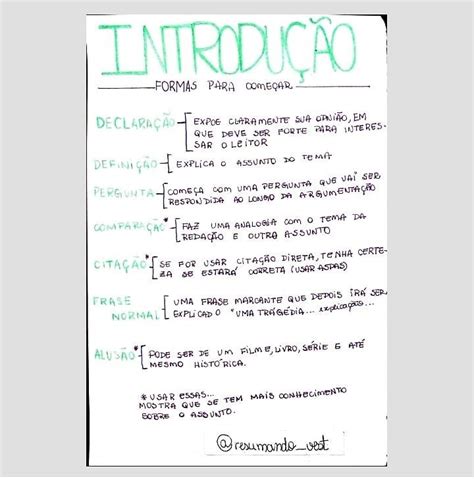 INTRODUÇÃO
FORMAS PARA COMEÇAR
DECLARAÇÃO EXPOE CLARAMENTE SUA OPNIÃO, EM
QUE DEVE SER FORTE PARA INTERES-
SAR O LEITOR
DEFINIÇÃO EXPLICA O ASSUNTO DO TEMA
PERGUNTA COMEÇA COM UMA PERGUNTA QUE VAI SER
RESPONDIDA AO LONGO DA ARGUMENTAÇÃO
COMPARAÇÃO* FAZ UMA ANALOGIA COM O TEMA DA
REDAÇÃO E OUTRO ASSUNTO
CITAÇÃO* SE FOR USAR CITAÇÃO DIRETA, TENHA CERTE-
ZA SE ESTARÁ CORRETA (USAR ASPAS)
FRASE NORMAL UMA FRASE MARCANTE QUE DEPOIS IRÁ SER
EXPLICADO "UMA TRAGÉDIA... explicações..."
ALUSÃO* PODE SER DE UM FILME, LIVRO, SÉRIE E ATÉ
MESMO HISTÓRICA.
* USAR ESSAS...
MOSTRA QUE SE TEM MAIS CONHECIMENTO
SOBRE O ASSUNTO.
@resumando_vest